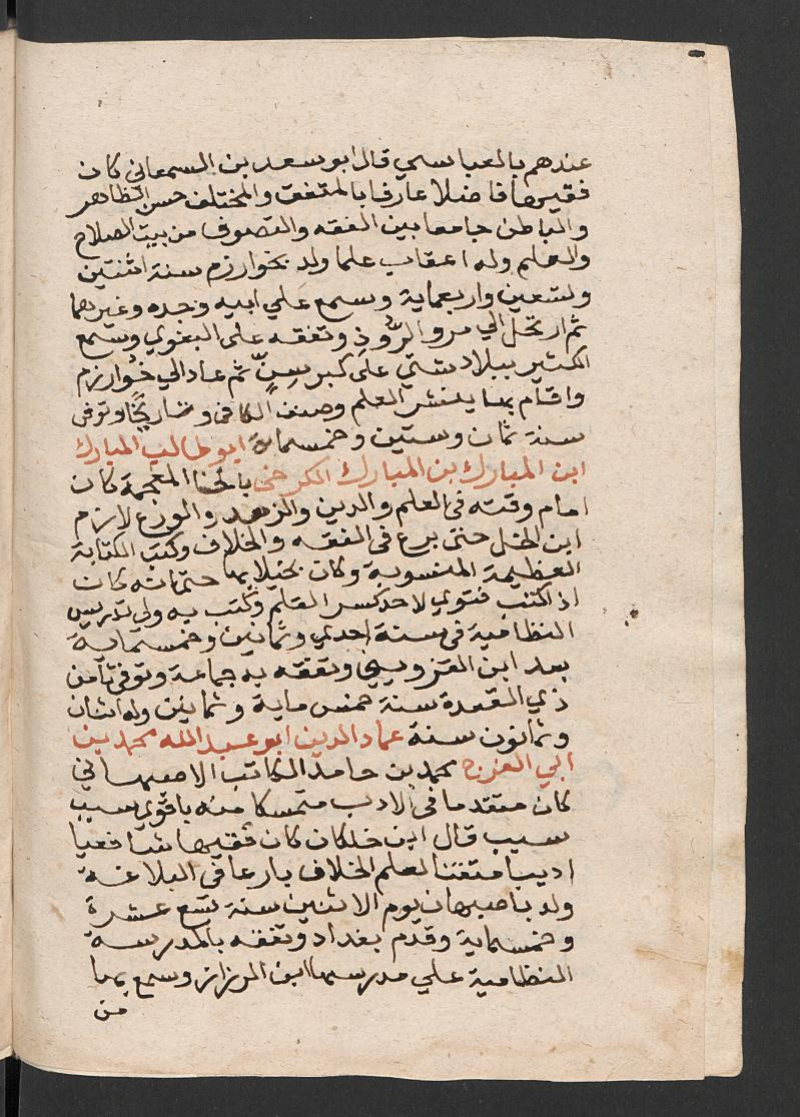 عندهم بالعباسي قال ابو سعد بن السمعاني كان
فقيها فاضلا عارفا بالمتفق والمختلف حسن الظاهر
والباطن جامعا بين الفقه والتصوف من بيت الصلاح
والعلم وله اعقاب علما ولد بخوارزم سنة اثنتين
وتسعين واربعماية وسمع علي ابيه وجده وغيرهما
ثم ارتحل الي مرو الرُّوذِ وتفقه على البغوي وسمع
الكثير ببلاد شتي على كبر سِنٍّ ثم عاد الي خُوارزم
واقام بها ينشر العلم وصنف الكافي وتاريخًا وتوفى
سنة ثمان وستين وخمسماية ابو طالب المبارك
ابن المبارك بن المبارك الكرخى بالخا المعجمة كان
امام وقته فى العلم والدين والزهد والورع لازم
ابن الخل حتى برع فى الفقه والخلاف وكتب الكتابة
العظيمة المنسوبة وكان بخيلا بها حتى انه كان
اذ اكتب فتوي لاحد كسر القلم وكتب به ولى تدريس
النظامية فى سنة احدي وثمانين وخمسماية
بعد ابن القزويني وتفقه به جماعة وتوفي ثامن
ذي القعدة سنة خمس ماية وثمانين وله اثنان
وثمانون سنة عماد الدين ابو عبد الله محمد بن
ابي الفرج محمد بن حامد الكاتب الاصبهاني
كان متقدما فى الادب متمسكا منه باقوي سبب
سبب قال ابن خلكان كان فقيها شافعيا
اديبا متقنا لعلم الخلاف بارعا في البلاغة
ولد باصبهان يوم الاثنين سنة تسع عشرة
وخمسماية وقدم بغداد وتفقه بالمدرسة
النظامية علي مدرسها ابن الرزاز وسمع بها
من